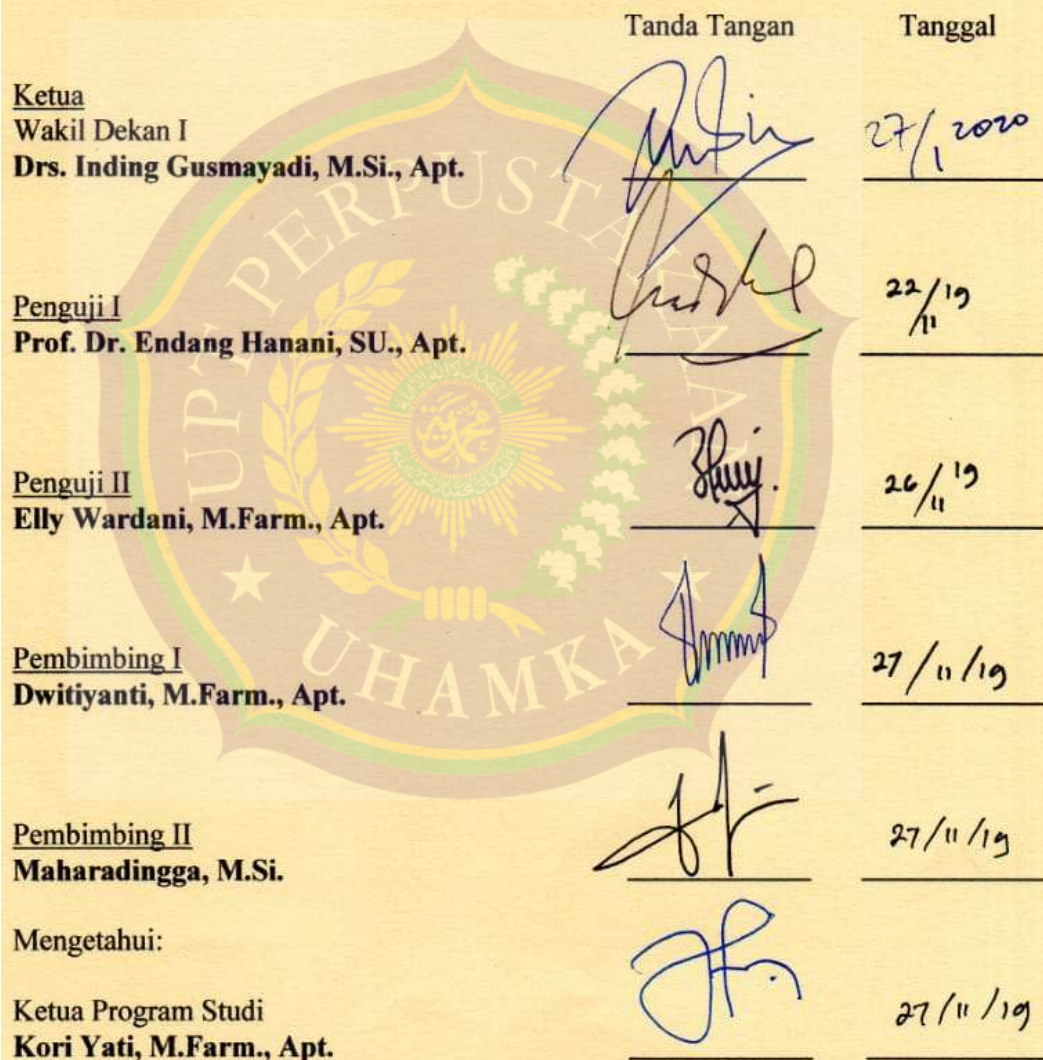 Tanda Tangan Tanggal
Ketua
Wakil Dekan I
Drs. Inding Gusmayadi, M.Si., Apt. 27/1 2020
Penguji I
Prof. Dr. Endang Hanani, SU., Apt. 22/11/19
Penguji II
Elly Wardani, M.Farm., Apt. 26/11/19
Pembimbing I
Dwitiyanti, M.Farm., Apt. 27/11/19
Pembimbing II
Maharadingga, M.Si. 27/11/19
Mengetahui:
Ketua Program Studi
Kori Yati, M.Farm., Apt. 27/11/19
UPT PERPUSTAKAAN
UHAMKA